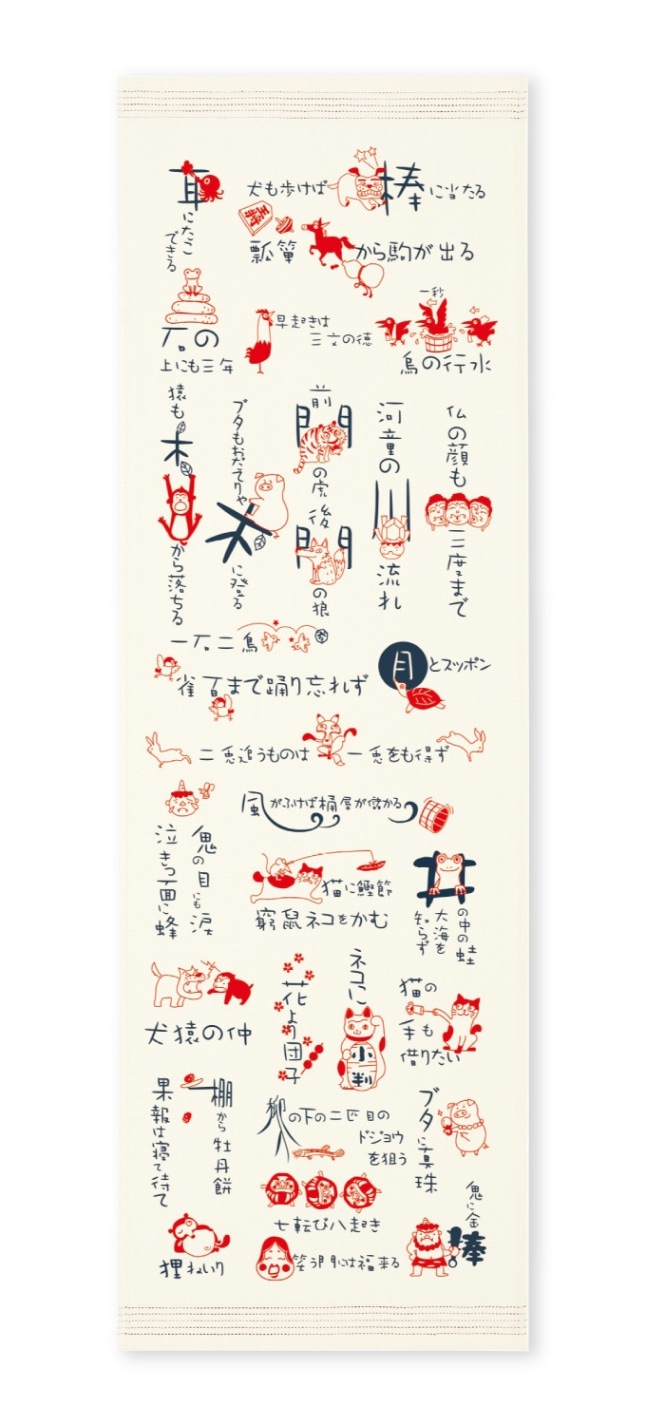 耳にたこできる
犬も歩けば棒に当たる
瓢箪から駒が出る
石の
上にも三年
早起きは
三文の徳
一秒
烏の行水
猿も木から落ちる
ブタもおだてりゃ木に登る
前門の虎後門の狼
河童の川流れ
仏の顔も三度まで
一石二鳥
月とスッポン
雀百まで踊り忘れず
二兎追うものは一兎をも得ず
風がふけば桶屋が儲かる
鬼の目にも涙
泣きっ面に蜂
猫に鰹節
窮鼠ネコをかむ
井の中の蛙
大海を
知らず
犬猿の仲
花より団子
ネコに小判
猫の
手も
借りたい
棚から牡丹餅
果報は寝て待て
柳の下の二匹目の
ドジョウ
を狙う
ブタに真珠
七転び八起き
鬼に金棒
狸ねいり
笑う門には福来る